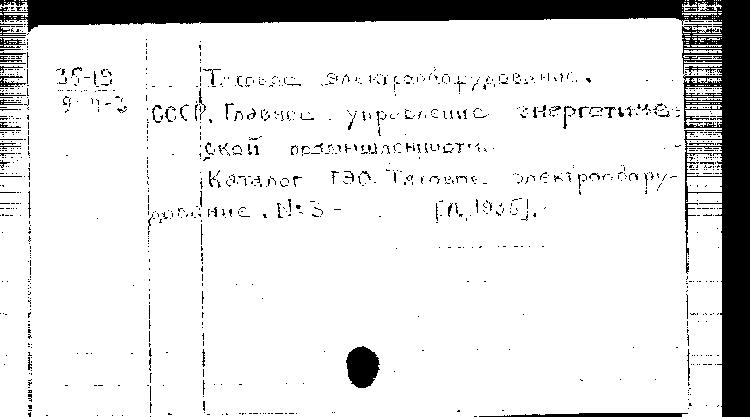 35-19
9-4-3
Тяговое электрооборудование.
СССР. Главное управление энергетиче-
ской промышленности.
Каталог ГЭО. Тяговое электрообору-
дование. №3- [Л, 1936].